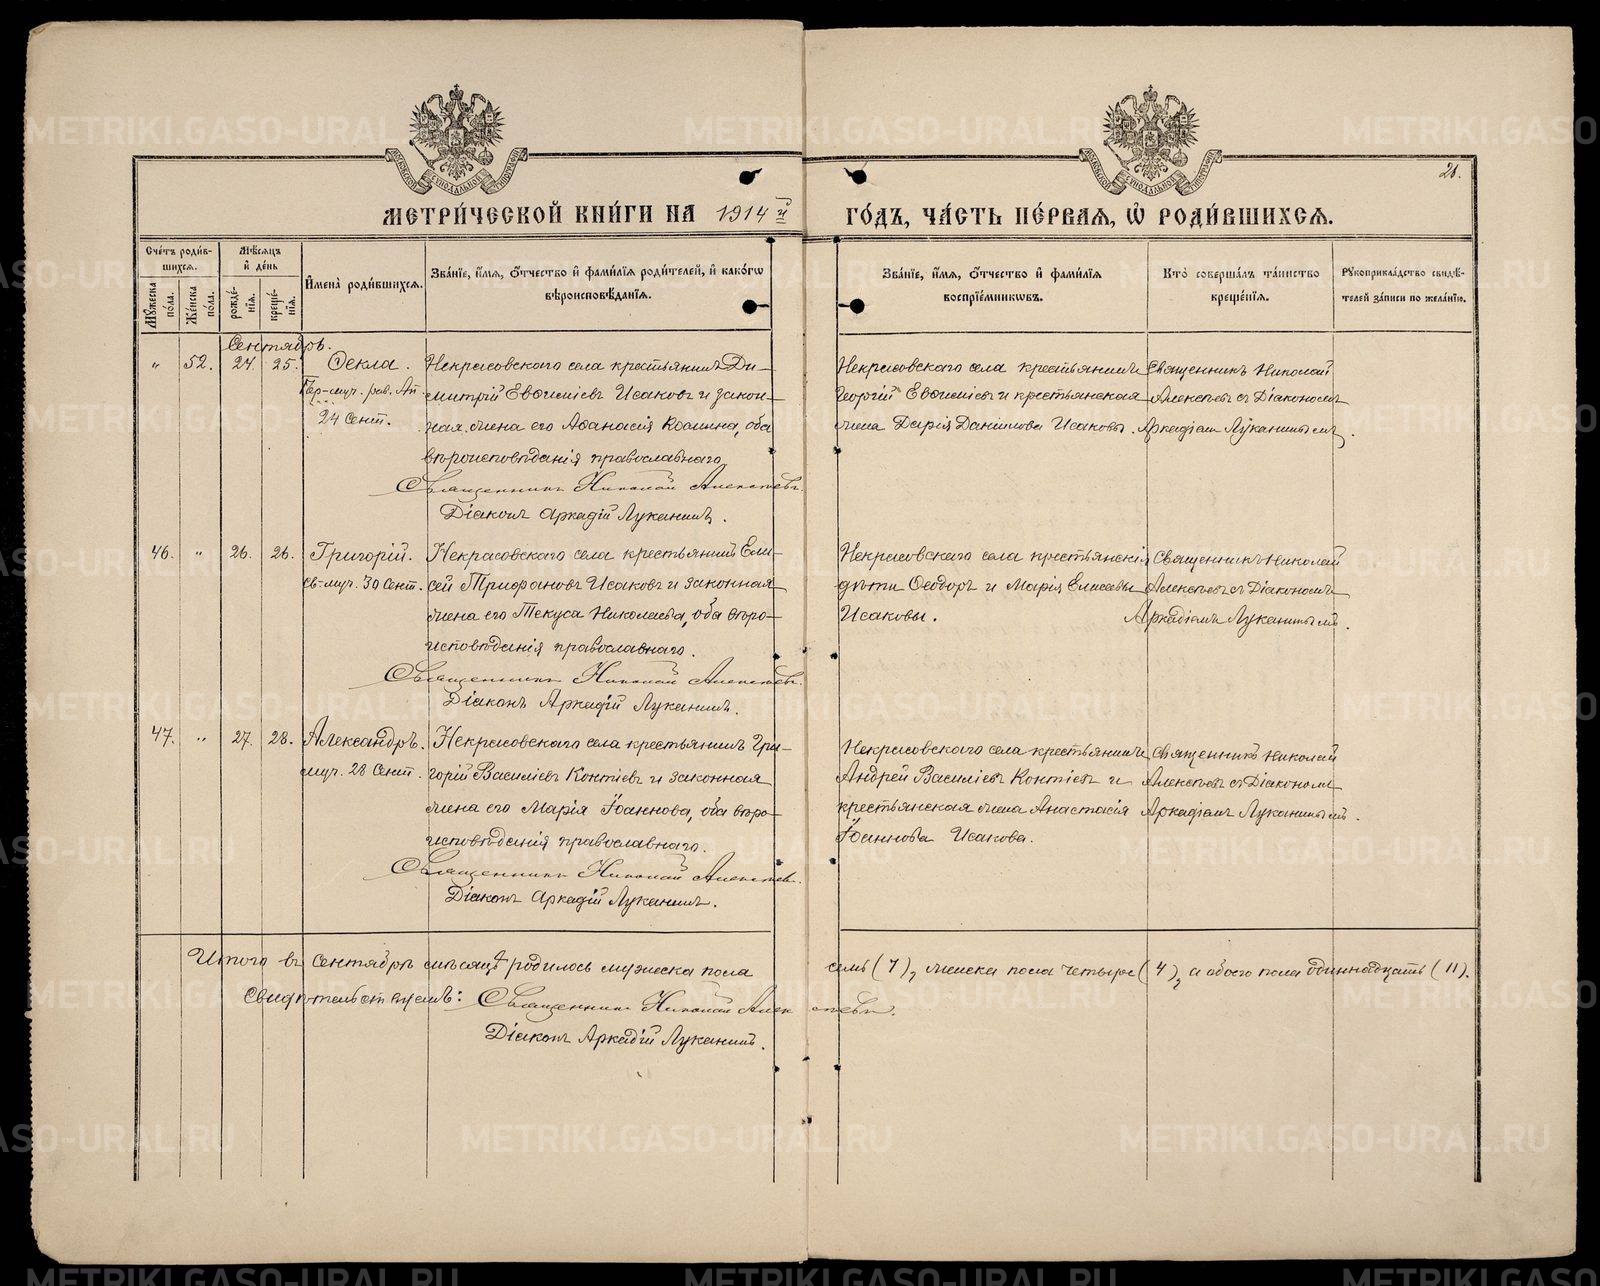 METRIKI.GASO-URAL.RU
МОСКОВСКОЙ СѴНОДАЛЬНОЙ ТИПОГРАФІИ
МОСКОВСКОЙ СѴНОДАЛЬНОЙ ТИПОГРАФІИ
21.
МЕТРИ́ЧЕСКОЙ КНИ́ГИ НА 1914 й ГО́ДЪ, ЧА́СТЬ ПЕ́РВАЯ, Ѡ РОДИ́ВШИХСЯ.
Сче́тъ роди́вшихся.
Мꙋ́жеска по́ла.
Же́нска по́ла.
Мѣ́сяцъ и де́нь
рожде́нїя.
креще́нїя.
И҆мена̀ роди́вшихся.
Зва́нїе, и҆́мя, ѻ҆́тчество и҆ фами́лїя роди́телей, и҆ како́гѡ
вѣроисповѣ́данїя.
Зва́нїе, и҆́мя, ѻ҆́тчество и҆ фами́лїя
воспрїе́мникѡвъ.
Кто̀ соверша́лъ та́инство
креще́нїя.
Рꙋкоприкла́дство свидѣ́-
телей за́писи по жела́нїю.
Сентябрь.
" 52. 24. 25. Ѳекла.
Пер-муч. рав. Ап.
24 Сент.
Некрасовскаго села крестьянинъ Ди-
митрій Евѳиміевъ Исаковъ и закон-
ная жена его Аѳанасія Космина, оба
вѣроисповѣданія православнаго
Священникъ Николай Алексѣевъ.
Діаконъ Аркадій Луканинъ.
Некрасовскаго села крестьянинъ
Георгій Евѳиміевъ и крестьянская
жена Дарія Даніилова Исаковы.
Священникъ Николай
Алексѣевъ съ Діакономъ
Аркадіемъ Луканинымъ.
46. " 26. 26. Григорій.
св-муч. 30 Сент.
Некрасовскаго села крестьянинъ Ели-
сей Трифановъ Исаковъ и законная
жена его Текуса Николаева, оба вѣро-
исповѣданія православнаго.
Священникъ Николай Алексѣевъ.
Діаконъ Аркадій Луканинъ.
Некрасовскаго села крестьянскія
дѣти Ѳеодоръ и Марія Елисеевы
Исаковы.
Священникъ Николай
Алексѣевъ съ Діакономъ
Аркадіемъ Луканинымъ.
47. " 27. 28. Александръ.
муч. 28 Сент.
Некрасовскаго села крестьянинъ Гри-
горій Василіевъ Коктіевъ и законная
жена его Марія Іоаннова, оба вѣро-
исповѣданія православнаго.
Священникъ Николай Алексѣевъ.
Діаконъ Аркадій Луканинъ.
Некрасовскаго села крестьянинъ
Андрей Василіевъ Коктіевъ и
крестьянская жена Анастасія
Іоаннова Исакова.
Священникъ Николай
Алексѣевъ съ Діакономъ
Аркадіемъ Луканинымъ.
Итого въ сентябрѣ мѣсяцѣ родилось мужеска пола семь (7), женска пола четыре (4), а обоего пола одиннадцать (11).
Свидѣтельствуемъ: Священникъ Николай Алексѣевъ.
Діаконъ Аркадій Луканинъ.